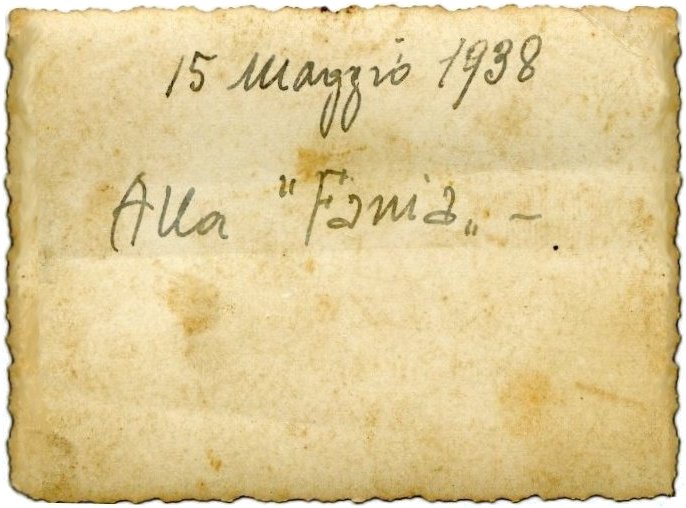 15 Maggio 1938
Alla "Fania„ –